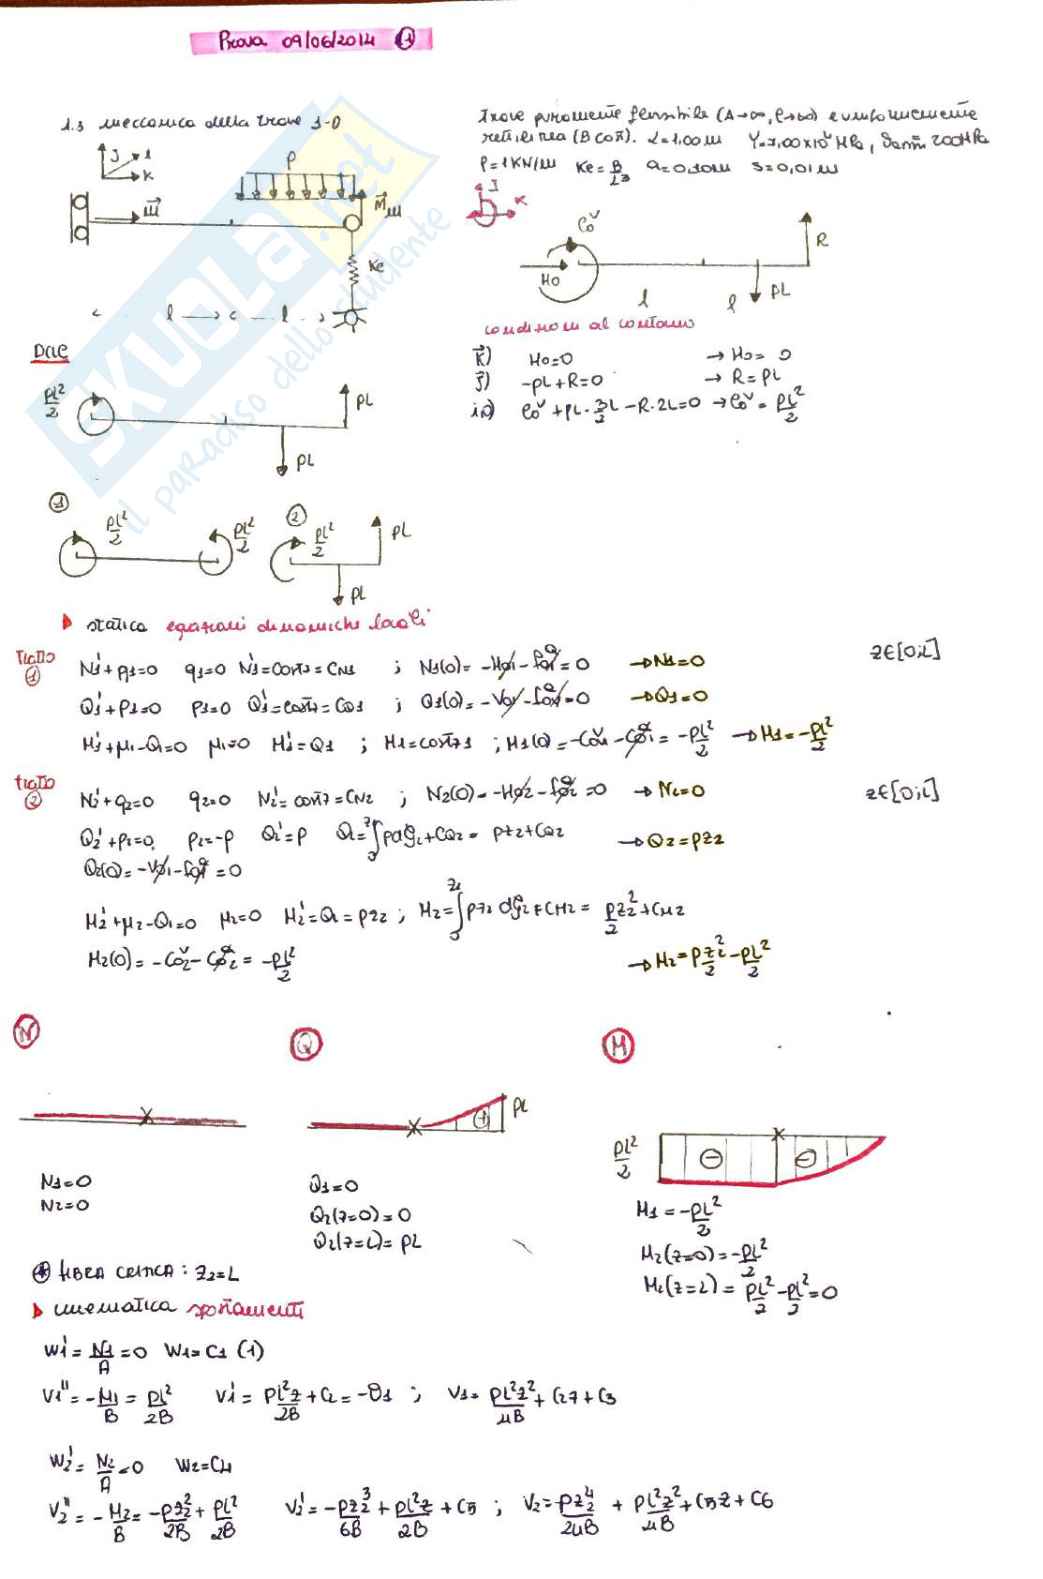 Prova 09/06/2014 ①
1.3 meccanica della trave 1-D
Trave puramente flessibile (A→∞, C→∞) e uniformemente
rettilinea (B cost). L=1,00 m Y=7,00x10⁴ MPa, σamm 200MPa
P=1KN/m Ke=B/L³ a=0,10m s=0,01m
J
i
K
P
Ke
l l
Co
Ho
l
l
R
pL
condizioni al contorno
K) Ho=0 → Ho= 0
J) -pL+R=0 → R=pL
io) Co+pL·3L/2-R·2L=0 → Co=pL²/2
DCL
pL²/2
pL
pL
①
pL²/2
pL²/2
②
pL²/2
pL
pL
statica equazioni dinamiche locali
tratto ①
N1'+q1=0 q1=0 N1'=cost=CN1 ; N1(0)= -Ho1-fo1=0 →N1=0 z∈[0;L]
Q1'+P1=0 P1=0 Q1'=cost=CQ1 ; Q1(0)=-Vo1-fo1=0 →Q1=0
M1'+μ1-Q1=0 μ1=0 M1'=Q1 ; M1=cost1 ; M1(0)=-Co1-Co1=-pL²/2 →M1=-pL²/2
tratto ②
N2'+q2=0 q2=0 N2'=cost=CN2 ; N2(0)=-Ho2-fo2=0 →N2=0 z∈[0;L]
Q2'+P2=0 P2=-P Q2'=P Q2=∫pdξ2+CQ2= pz2+CQ2 →Q2=pz2
Q2(0)=-Vo1-fo1=0
M2'+μ2-Q2=0 μ2=0 M2'=Q2=pz2 ; M2=∫pz2 dξ2+CM2= pz2²/2+CM2
M2(0)=-Co2-Co2=-pL²/2 →M2=pz2²/2-pL²/2
N
Q
M
pL
+
pL²/2
-
-
N1=0
N2=0
Q1=0
Q2(z=0)=0
Q2(z=L)=pL
M1=-pL²/2
M2(z=0)=-pL²/2
M2(z=L)=pL²/2-pL²/2=0
FIBRA CRITICA: z2=L
cinematica spostamenti
w1'=N1/A=0 w1=C1 (1)
V1''=-M1/B=pL²/2B V1'=pL²z/2B+C2=-θ1 ; V1=pL²z²/4B+C2z+C3
w2'=N2/A=0 w2=C4
V2''=-M2/B=-pz2²/2B+pL²/2B V2'=-pz2³/6B+pL²z/2B+C5 ; V2=-pz2⁴/24B+pL²z²/4B+C5z+C6
SKUOLA.net
il paradiso dello studente